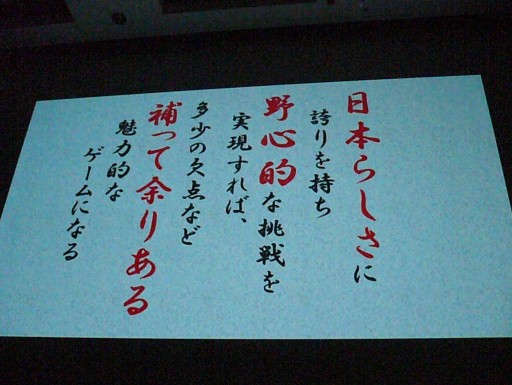 日本らしさに
誇りを持ち
野心的な挑戦を
実現すれば、
多少の欠点など
補って余りある
魅力的な
ゲームになる